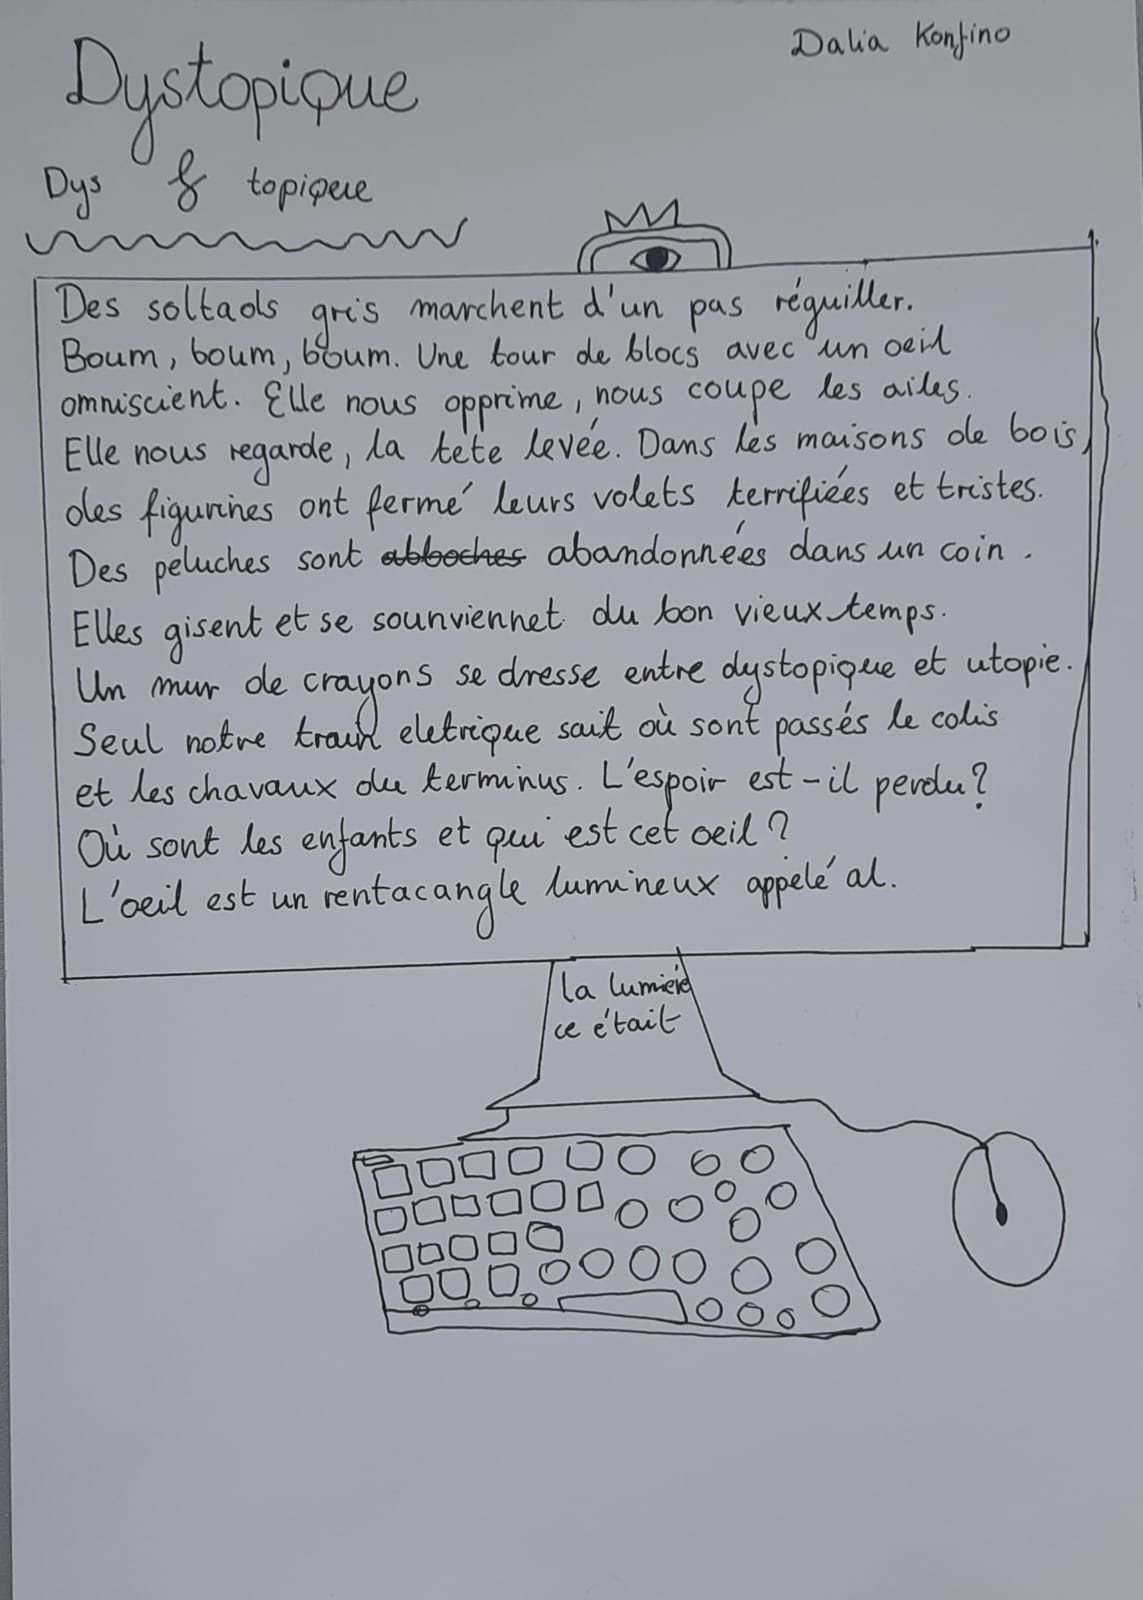 Dalia Konfino
Dystopique
Dys & topique
Des soltads gris marchent d'un pas réguiller.
Boum, boum, boum. Une tour de blocs avec un oeil
omniscient. Elle nous opprime, nous coupe les ailes.
Elle nous regarde, la tete levée. Dans les maisons de bois,
des figurines ont fermé leurs volets terrifiées et tristes.
Des peluches sont abboches abandonnées dans un coin.
Elles gisent et se sounviennet du bon vieux temps.
Un mur de crayons se dresse entre dystopique et utopie.
Seul notre train eletrique sait où sont passés le colis
et les chavaux du terminus. L'espoir est-il perdu?
Où sont les enfants et qui est cet oeil?
L'oeil est un rentacangle lumineux appelé al.
la lumiére
ce était